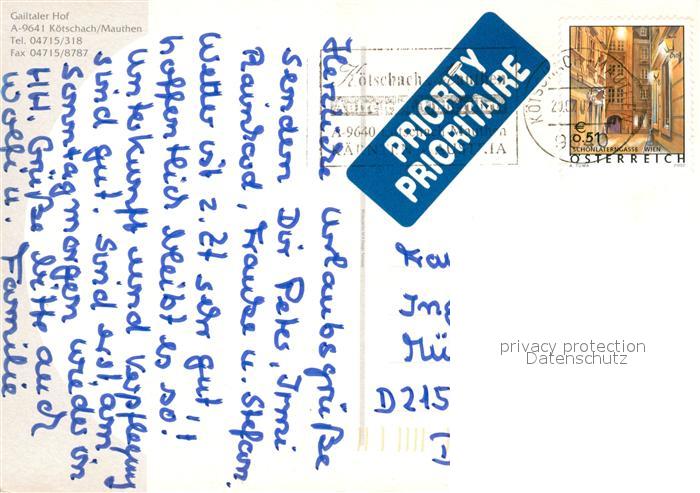 Gailtaler Hof
A-9641 Kötschach/Mauthen
Tel. 04715/318
Fax 04715/8787
Herzliche Urlaubsgrüße
senden Dir Peter, Irmi
Reinhard, Frauke u. Stefan.
Wetter ist z.Zt sehr gut,
hoffentlich bleibt es so!
Unterkunft und Verpflegung
sind gut. Sind erst am
Sonntagmorgen wieder in
HH. Grüße bitte auch
Wolf u. Familie
PRIORITY
PRIORITAIRE
Kötschach Mauthen
A-9640 Kötschach Mauthen
€
0,51
SCHÖNLATERNGASSE WIEN
ÖSTERREICH
Ka
In
Mü
D215
(-)
privacy protection
Datenschutz